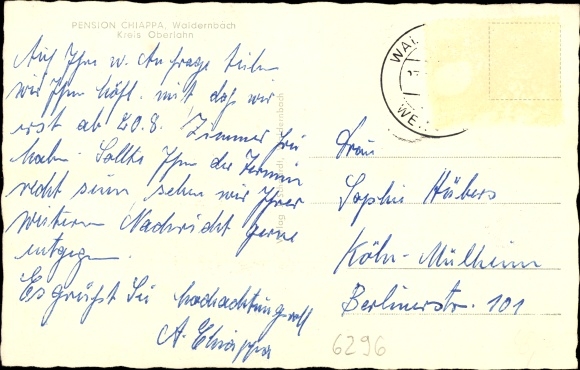 PENSION CHIAPPA, Waldernbach
Kreis Oberlahn
Auf Ihre w. Anfrage teilen
wir Ihn höfl. mit daß wir
erst ab 20.8. Zimmer frei
haben Sollte Ihn der Termin
recht sein sehn wir Ihrer
weiteren Nachricht gerne
entgegen.
Es grüßt Sie hochachtungsvoll
A. Chiappa
WAL
WE
Frau
Sophie Hübers
Köln-Mülheim
Berlinerstr. 101
6296